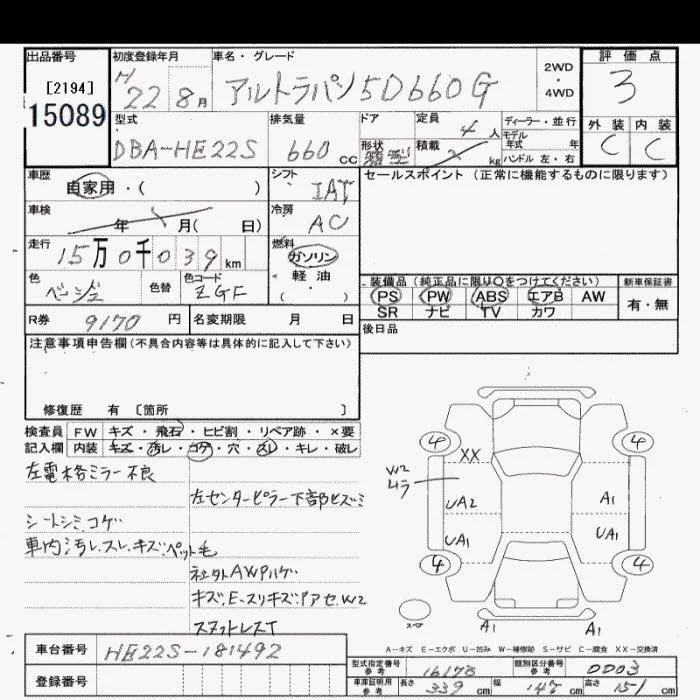 出品番号 初度登録年月 車名・グレード 評価点
[2194] H 22 8月 アルトラパン5D660G 2WD・4WD 3
15089 型式 排気量 ドア 定員 ディーラー・並行 外装 内装
DBA-HE22S 660cc 形状 4人 モデル年式 年 C C
積載 kg ハンドル 左・右
車歴 自家用・( ) シフト IAT セールスポイント(正常に機能するものに限ります)
車検 年 月( 日) 冷房 AC
走行 15万0千039km 燃料 ガソリン
軽油
( ・ )
色 ベージュ 色替 色コード ZGF 装備品(純正品に限り○をつけてください) 新車保証書
PS PW ABS エアB AW 有・無
SR ナビ TV カワ
R券 9170円 名変期限 月 日 後日品
注意事項申告欄(不具合内容等は具体的に記入して下さい)
修復歴 有 〔箇所 〕
検査員 FW キズ・飛石・ヒビ割・リペア跡・×要
記入欄 内装 キズ・汚レ・コゲ・穴・スレ・キレ・破レ
左電格ミラー不良
左センターピラー下部ヒズミ
シートシミコゲ
車内汚レ.スレ.キズ.ペット毛
社外AWハゲ
スタッドレスT
4 4
XX
W2
ムラ
UA2 A1
UA1 UA1
4 4
スペア
A1 A1
A-キズ E-エクボ U-凹み W-補修跡 S-サビ C-腐食 XX-交換済
車台番号 HE22S-181492
登録番号
型式指定番号 参考 16178 類別区分番号 参考 0003
車庫証明用 参考 長さ 339cm 幅 147cm 高さ 151cm